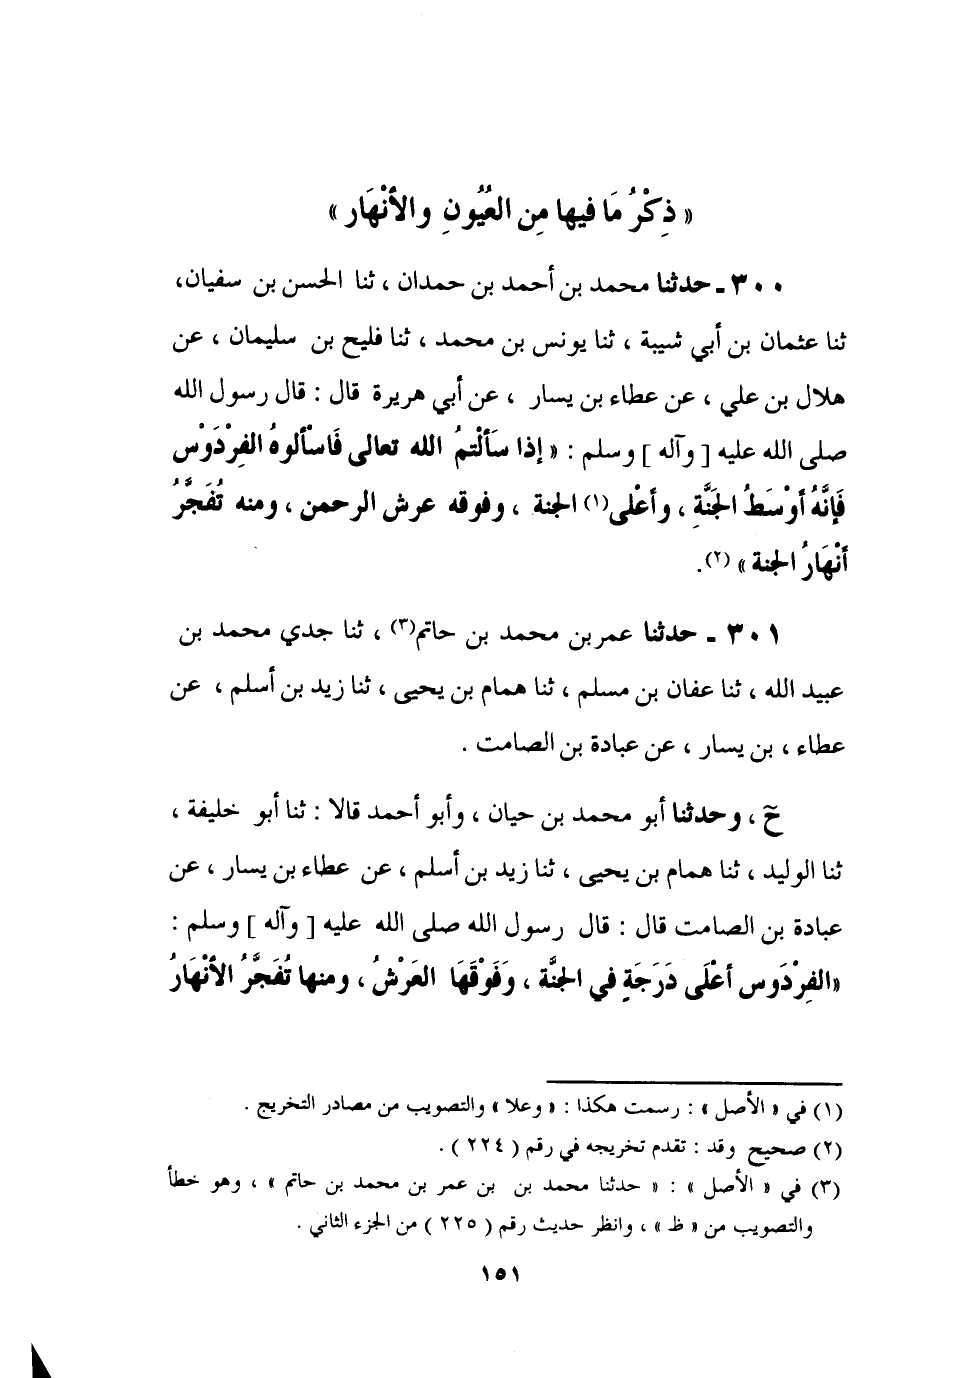 « ذِكْرُ مَا فيها مِن العُيُونِ والأنْهَار »
٣٠٠ ـ حدثنا محمد بن أحمد بن حمدان ، ثنا الحسن بن سفيان،
ثنا عثمان بن أبي شيبة ، ثنا يونس بن محمد ، ثنا فليح بن سليمان ، عن
هلال بن علي ، عن عطاء بن يسار ، عن أبي هريرة قال : قال رسول الله
صلى الله عليه [ وآله ] وسلم : « إذا سَألْتمُ الله تعالى فَاسْألوهُ الفِرْدَوْس
فَإنَّهُ أوْسَطُ الجَنَّةِ ، وأعْلى(١) الجنة ، وفوقه عرش الرحمن ، ومنه تُفَجَّرُ
أنْهَارُ الجنة » (٢).
٣٠١ ـ حدثنا عمر بن محمد بن حاتم(٣) ، ثنا جدي محمد بن
عبيد الله ، ثنا عفان بن مسلم ، ثنا همام بن يحيى ، ثنا زيد بن أسلم ، عن
عطاء ، بن يسار ، عن عبادة بن الصامت .
حَ ، وحدثنا أبو محمد بن حيان ، وأبو أحمد قالا : ثنا أبو خليفة ،
ثنا الوليد ، ثنا همام بن يحيى ، ثنا زيد بن أسلم ، عن عطاء بن يسار ، عن
عبادة بن الصامت قال : قال رسول الله صلى الله عليه [ وآله ] وسلم :
«الفِرْدَوس أعْلَى دَرَجَةٍ في الجنَّة ، وَفَوْقَهَا العَرْشُ ، ومنها تُفَجَّرُ الأنْهَارُ
(١) في « الأصل » : رسمت هكذا : « وعلا » والتصويب من مصادر التخريج .
(٢) صحيح وقد : تقدم تخريجه في رقم ( ٢٢٤ ) .
(٣) في « الأصل » : « حدثنا محمد بن بن عمر بن محمد بن حاتم » ، وهو خطأ
والتصويب من « ظ » ، وانظر حديث رقم ( ٢٢٥ ) من الجزء الثاني .
١٥١